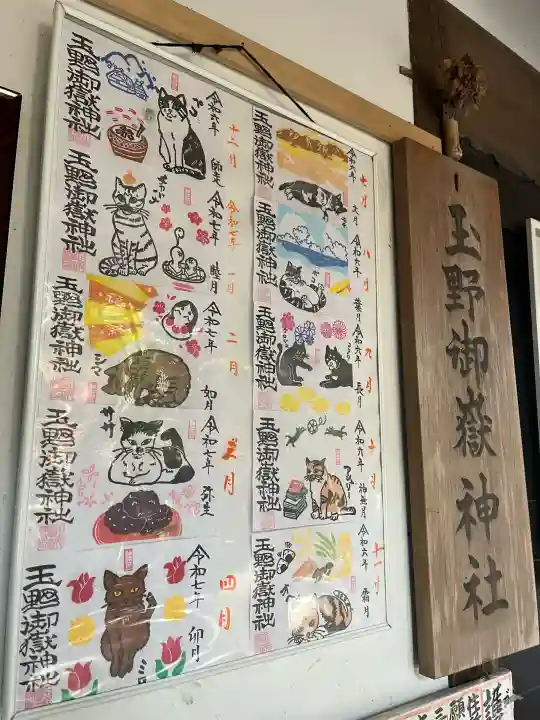 玉野御嶽神社
令和六年
十二月
師走
玉野御嶽神社
令和七年
一月
睦月
玉野御嶽神社
令和七年
二月
如月
シマ
玉野御嶽神社
令和七年
三月
弥生
ササ
玉野御嶽神社
令和七年
四月
卯月
ミロ
玉野御嶽神社
令和六年
七月
文月
玉野御嶽神社
令和六年
八月
葉月
玉野御嶽神社
令和六年
九月
長月
玉野御嶽神社
令和六年
十月
神無月
玉野御嶽神社
令和六年
十一月
霜月
玉野御嶽神社